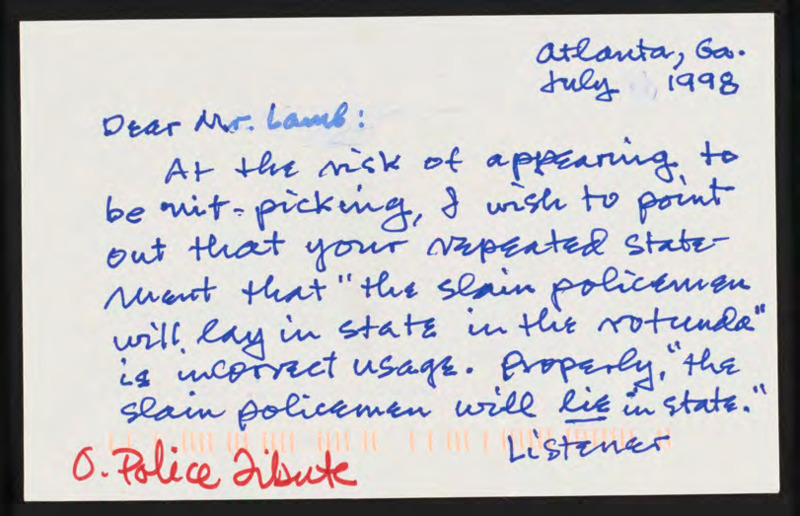 Atlanta, Ga.
July 1998
Dear Mr. Lamb:
At the risk of appearing to
be nit-picking, I wish to point
out that your repeated state-
ment that "the slain policemen
will lay in state in the rotunda"
is incorrect usage. Properly, "the
slain policemen will lie in state."
Listener
O. Police Tibute